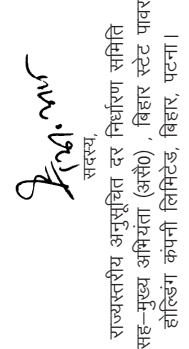 सदस्य,
राज्यस्तरीय अनुसूचित दर निर्धारण समिति
सह–मुख्य अभियंता (असै0) , बिहार स्टेट पावर
होल्डिंग कंपनी लिमिटेड, बिहार, पटना।